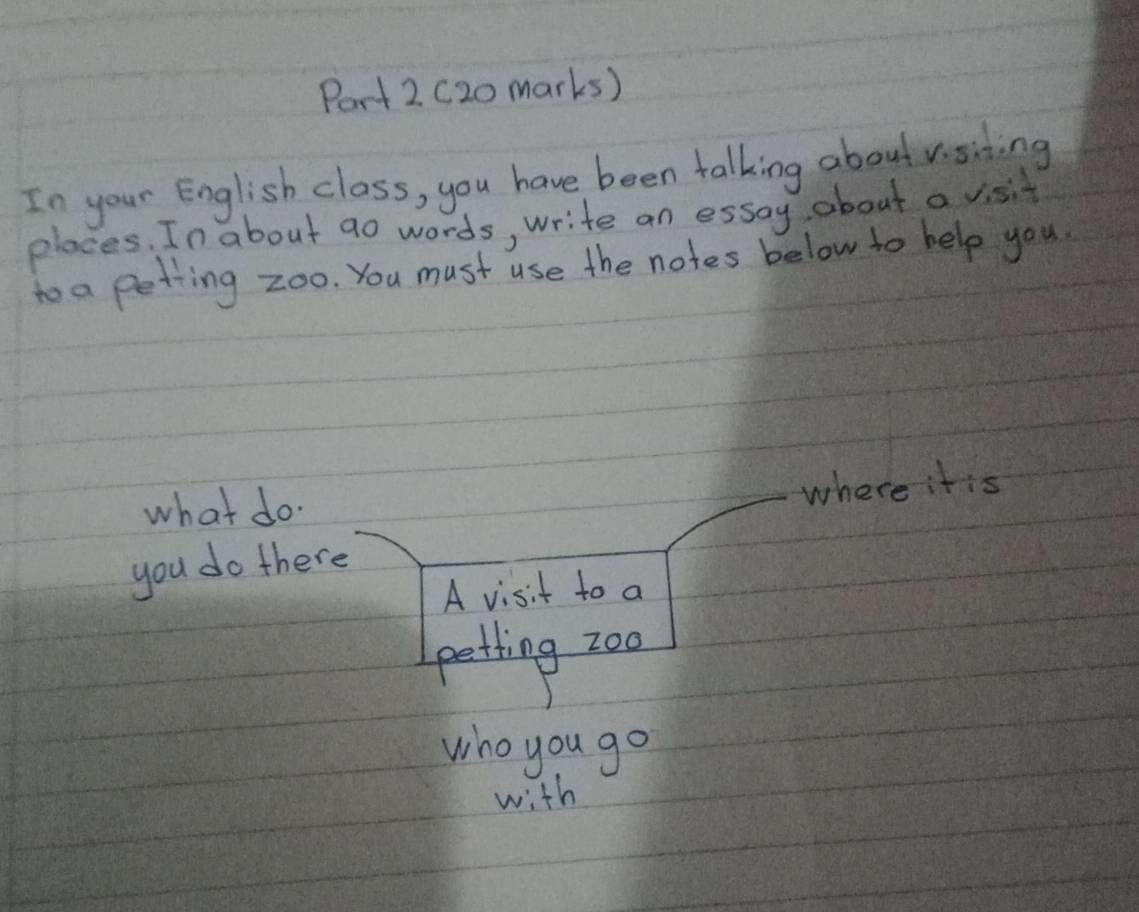 Part 2 (20 marks)
In your English class, you have been talking about visiting
places. In about 90 words, write an essay about a visit
to a petting zoo. You must use the notes below to help you.
what do
you do there
where it is
A visit to a
petting zoo
who you go
with